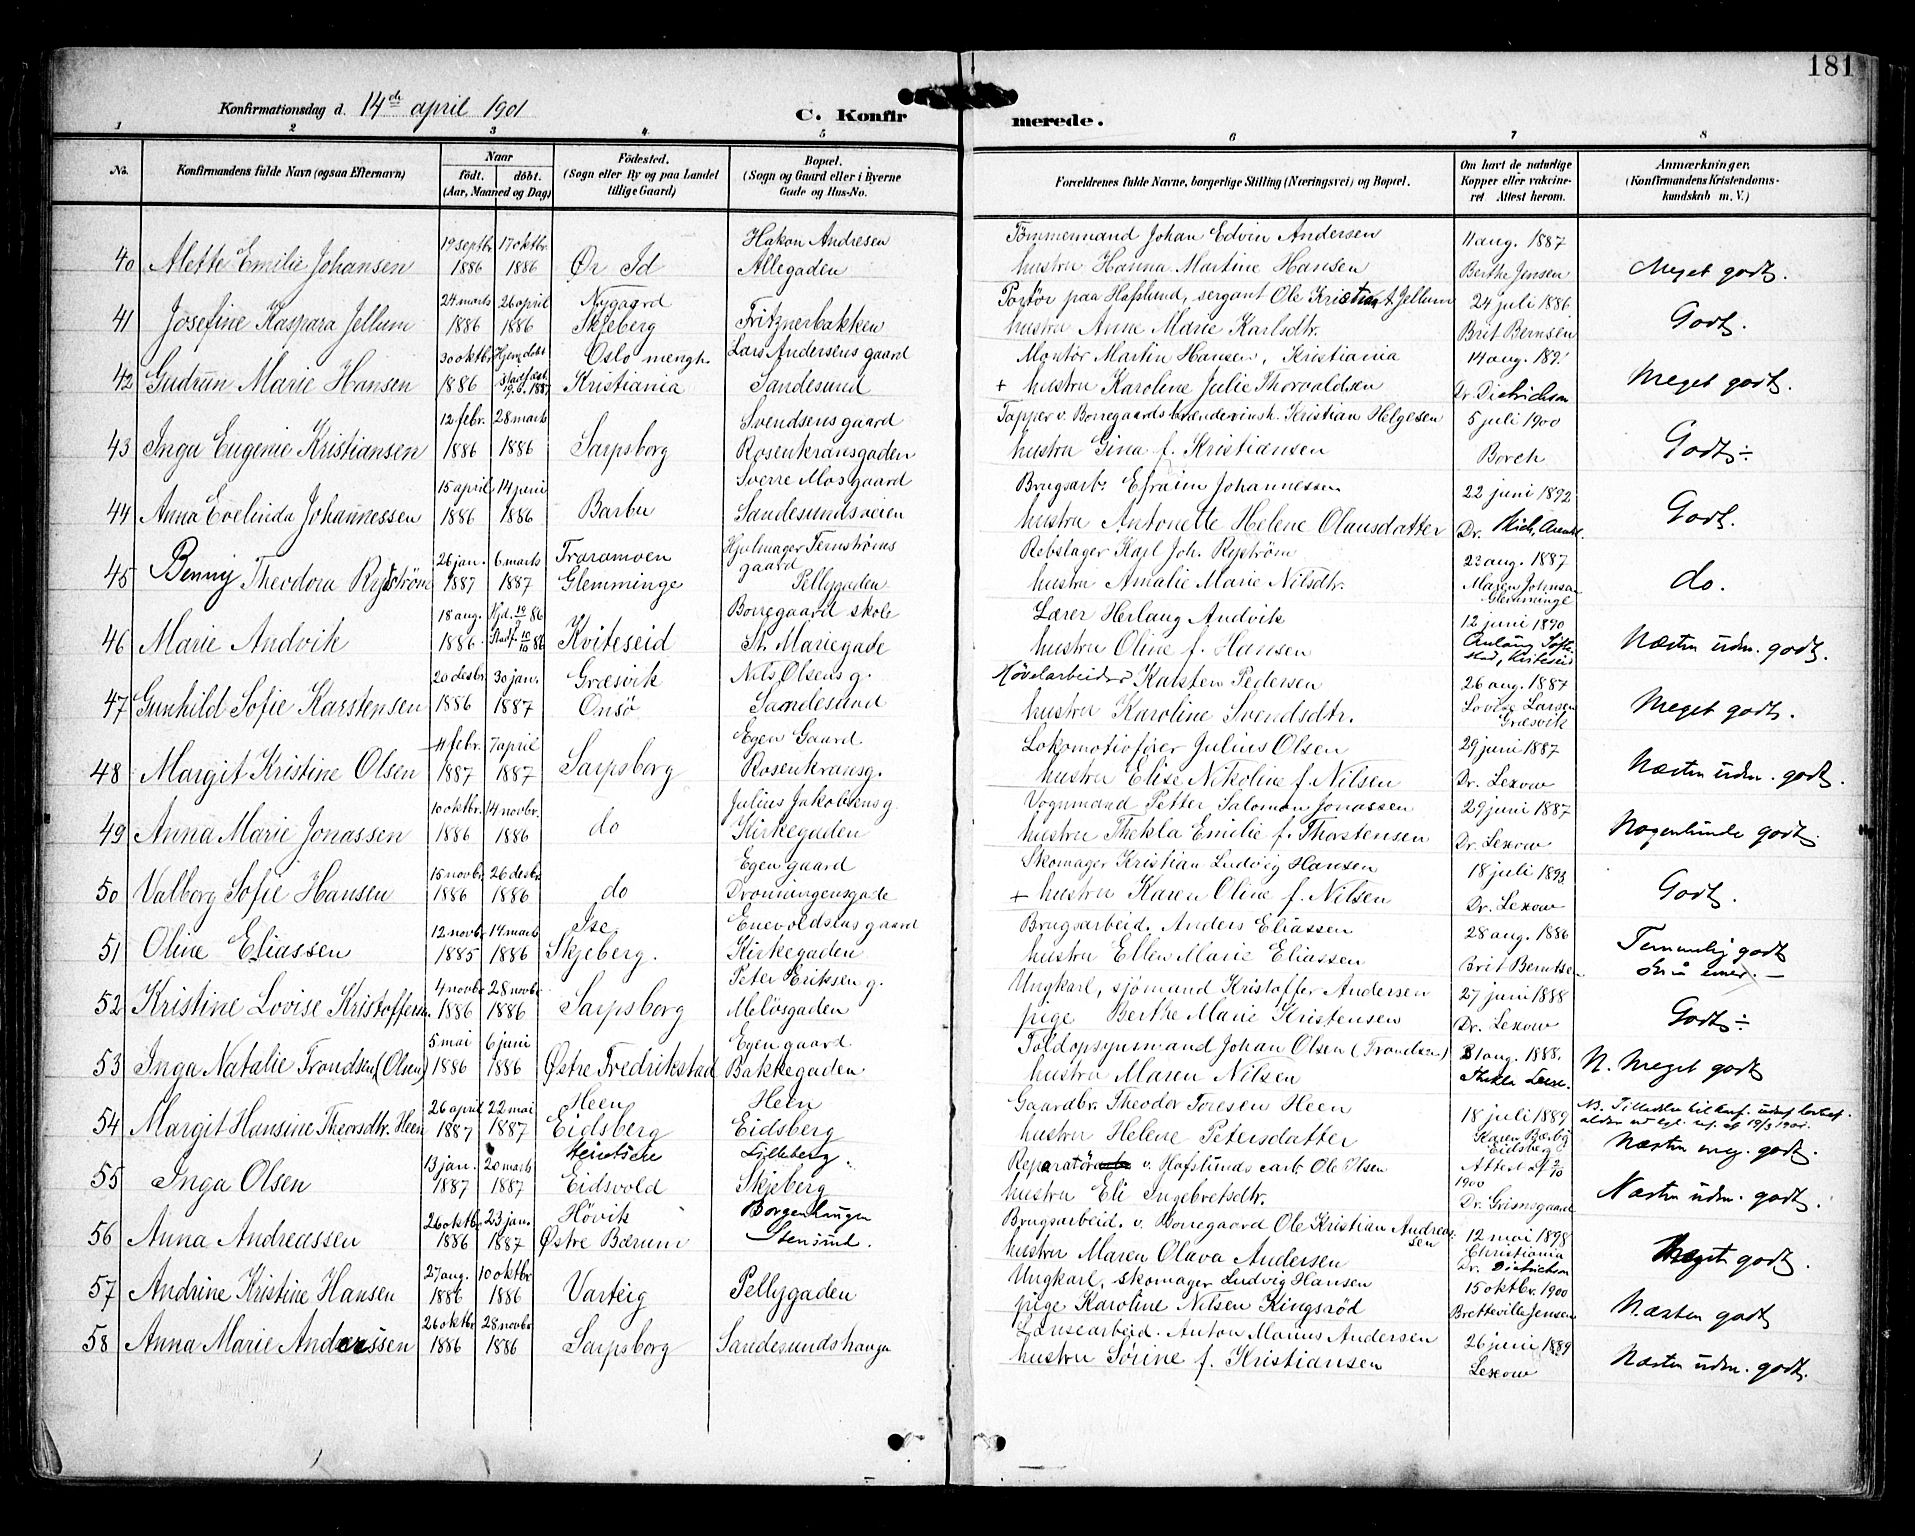 181
Konfirmationsdag d. 14de april 1901
C. Konfirmerede.
1 2 3 4 5 6 7 8
No.
Konfirmandens fulde Navn (ogsaa Efternavn)
Naar
født. døbt.
(Aar, Maaned og Dag)
Fødested.
(Sogn eller By og paa Landet
tillige Gaard)
Bopæl.
(Sogn og Gaard eller i Byerne
Gade og Hus-No.
Forældrenes fulde Navne, borgerlige Stilling (Næringsvei) og Bopæl.
Om havt de naturlige
Kopper eller vakcineret
Attest herom.
Anmærkninger.
(Konfirmandens Kristendomskundskab
m. V.)
40 Alette Emilie Johansen
19 septbr. 1886 17 oktbr. 1886
Ør Id
Hakon Andresen
Allegaden
Tømmermand Johan Edvin Andersen
hustru Hanna Martine Hansen
11 aug. 1887
Berthe Jensen
Meget godt.
41 Josefine Kaspara Jellum
24 marts 1886 26 april 1886
Nygaard
Skjeberg
Fritznerbakken
Portør paa Hafslund, sergant Ole Kristian A Jellum
hustru Anne Marie Karlsdtr.
24 juli 1886
Brit Bernsen
Godt.
42 Gudrun Marie Hansen
30 oktbr. 1886 Hjemdøbt
Oslo mengh.
Kristiania
Lars Andersens gaard
Sandesund
Montør Martin Hansen, Kristiania
+ hustru Karoline Julie Thorvaldsen
14 aug.
Dr. Dietrichson
Meget godt.
43 Inga Eugenie Kristiansen
12 febr. 1886 28 marts 1886
Sarpsborg
Svendsens gaard
Rosenkransgaden
Tapper v. Borregaards brændevinsh. Kristian Helgesen
hustru Gina f. Kristiansen
5 juli 1900
Borch
Godt ÷
44 Anna Evelinda Johannessen
15 april 1886 14 juni 1886
Barbu
Sverre Mos gaard
Sandesundsveien
Brugsarb. Efraim Johannessen
hustru Antonette Helene Olausdatter
22 juni 1892
Dr.
Godt.
45 Benny Theodora Rystrøm
26 jan. 1887 6 marts 1887
Traramoen
Glemminge
Hjulmager Ternstrøms
gaard
Pellygaden
Rebslager Karl Joh. Rystrøm
hustru Amalie Marie Nilsdtr.
23 aug. 1887
Maren Johnsen
Glemminge
do.
46 Marie Andvik
18 aug. 1886 Hjd. 19/9 86
Stadf. 10/10 86
Kviteseid
Borregaard skole
St. Mariegade
Lærer Herlaug Andvik
hustru Oline f. Hansen
12 juni 1890
Næsten udm. godt.
47 Gunhild Sofie Karstensen
20 desbr. 1886 30 jan. 1887
Græsvik
Onsø
Nils Olsens g.
Sandesund
Høvelarbeider Karsten Pedersen
hustru Karoline Svendsdtr.
26 aug. 1887
Lovise Larsen
Græsvik
Meget godt.
48 Margit Kristine Olsen
11 febr. 1887 7 april 1887
Sarpsborg
Egen Gaard
Rosenkransg.
Lokomotivfører Julius Olsen
hustru Elise Nikoline f. Nilsen
29 juni 1887
Dr. Lexow
Næsten udm. godt.
49 Anna Marie Jonassen
10 oktbr. 1886 14 novbr. 1886
do
Julius Jakobsens g.
Kirkegaden
Vognmand Petter Salomon Jonassen
hustru Thekla Emilie f. Thorstensen
29 juni 1887
Dr. Lexow
Nogenlunde godt.
50 Valborg Sofie Hansen
15 novbr. 1886 26 desbr. 1886
do
Egen gaard
Dronningensgade
Skomager Kristian Ludvig Hansen
+ hustru Karen Oline f. Nilsen
18 juli 1893
Dr. Lexow
Godt.
51 Oline Eliassen
12 novbr. 1885 14 marts 1886
Ise
Skjeberg.
Enevoldsens gaard
Kirkegaden
Brugsarbeid. Anders Eliassen
hustru Ellen Marie Eliassen
28 aug. 1886
Brit Berntsen
Temmelig godt
52 Kristine Lovise Kristoffersen
4 novbr. 1886 28 novbr. 1886
Sarpsborg
Peter Eriksen g.
Meløsgaden
Ungkarl, sjømand Kristoffer Andersen
pige Berthe Marie Kristensen
27 juni 1888
Dr. Lexow
Godt ÷
53 Inga Natalie Trondsen (Olsen)
5 mai 1886 6 juni 1886
Østre Fredrikstad
Egen gaard
Bakkegaden
Toldopsynsmand Johan Olsen (Trondsen)
hustru Maren Nilsen
31 aug. 1888.
N. Meget godt
54 Margit Hansine Theorsdtr. Heen
26 april 1887 22 mai 1887
Heen
Eidsberg
Heen
Eidsberg
Gaardbr. Theodor Toresen Heen
hustru Helene Petersdatter
18 juli 1889
Karen Bærby
Eidsberg
Næsten meg. godt.
55 Inga Olsen
13 jan. 1887 20 marts 1887
Eidsvold
Lilleberg.
Skjeberg
Reparatør v. Hafslunds carb. Ole Olsen
hustru Eli Ingebretsdtr.
Attest af 9/10
1900
Dr. Grimsgaard
Næsten udm. godt.
56 Anna Andreassen
26 oktbr. 1886 23 jan. 1887
Høvik
Østre Bærum
Borgenhaugen
Stensund.
Brugsarbeid. v. Borregaard Ole Kristian Andreassen
hustru Maren Olava Andersen
12 mai 1898
Christiania
Dr. Dietrichson
Meget godt.
57 Andrine Kristine Hansen
27 aug. 1886 10 oktbr. 1886
Varteig
Pellygaden
Ungkarl, skomager Ludvig Hansen
pige Karoline Nilsen Kingsrød
15 oktbr. 1900
Bretteville Jensen
Næsten godt
58 Anna Marie Anderssen
26 oktbr. 1886 28 novbr. 1886
Sarpsborg
Sandesundshaugen
Lænsearbeid. Anton Marius Andersen
hustru Sørine f. Kristiansen
26 juni 1889
Lexow
Næsten udm. godt.